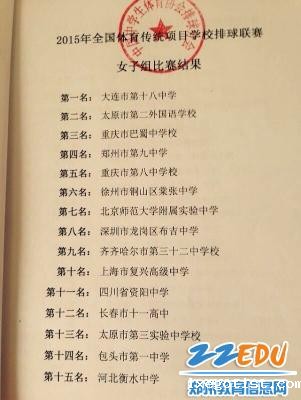 中国中学生体育协会排球分会
2015年全国体育传统项目学校排球联赛
女子组比赛结果
第一名：大连市第十八中学
第二名：太原市第二外国语学校
第三名：重庆市巴蜀中学校
第四名：郑州市第九中学
第五名：重庆市第八中学校
第六名：徐州市铜山区棠张中学
第七名：北京师范大学附属实验中学
第八名：深圳市龙岗区布吉中学
第九名：齐齐哈尔市第三十二中学校
第十名：上海市复兴高级中学
第十一名：四川省资阳中学
第十二名：长春市十一高中
第十三名：太原市第三实验中学校
第十四名：包头市第一中学
第十五名：河北衡水中学
ZZEDU
郑州教育信息网